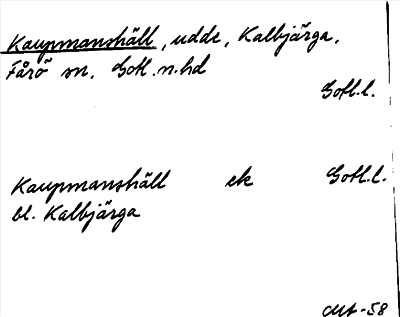 Kaupmanshäll, udde, Kalbjärga.
Fårö sn. Gotl. n. hd
Gotl.l.
Kaupmanshäll ek Gotl.l.
bl. Kalbjärga
-58